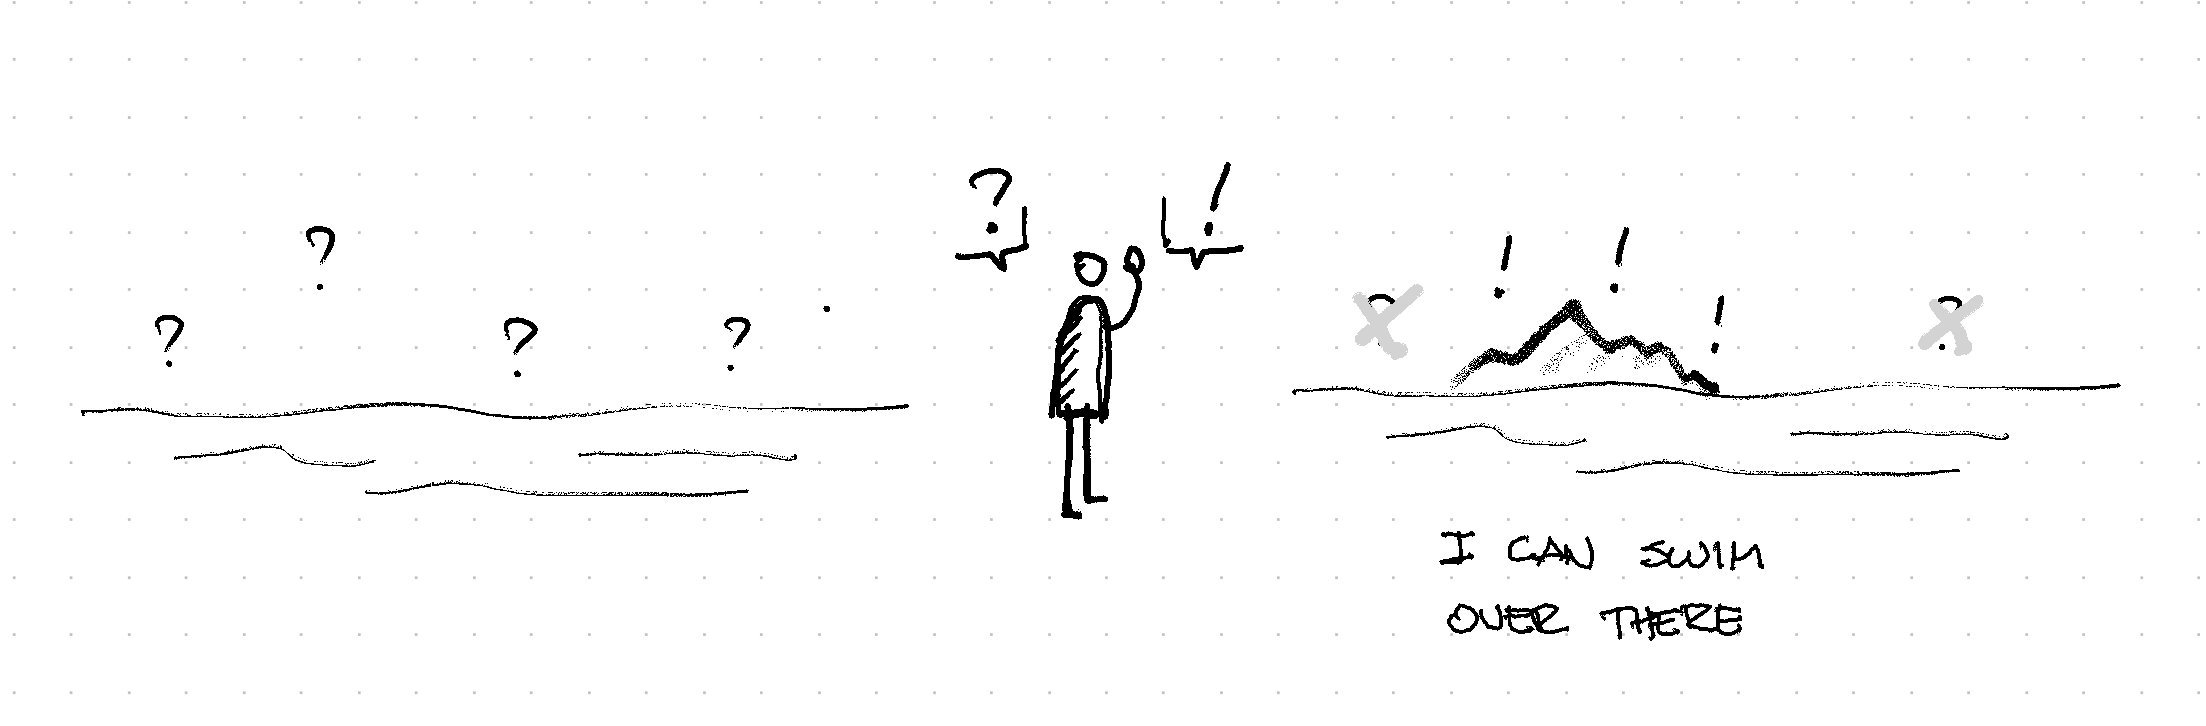 ?
? ? ?
?
!
! !
!
I CAN SWIM
OVER THERE